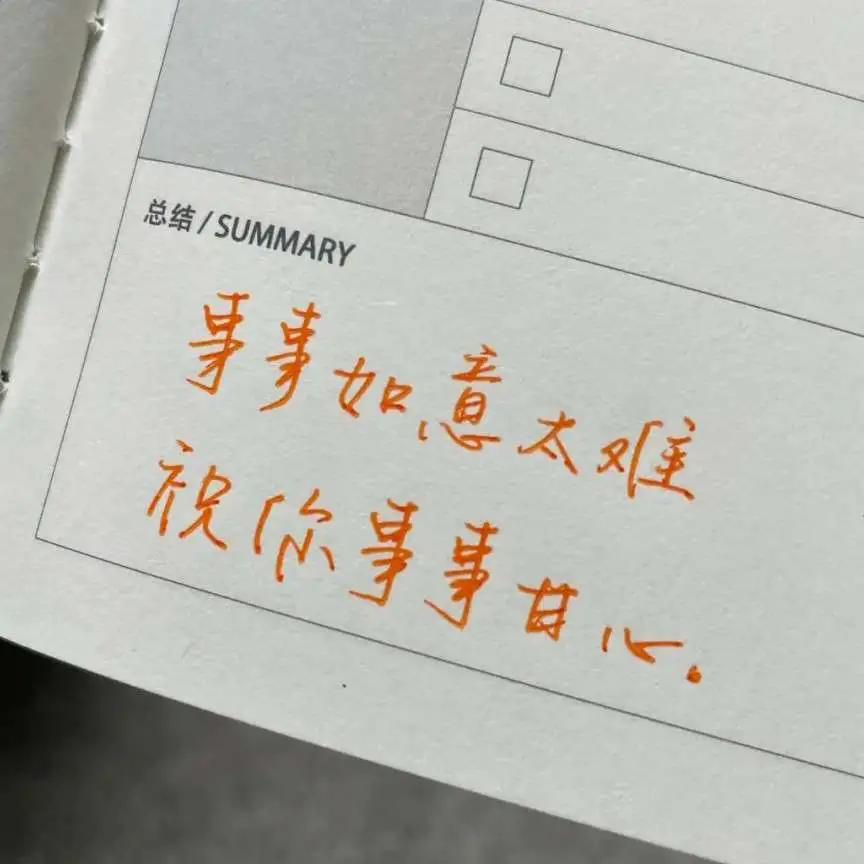 总结/SUMMARY
事事如意太难
祝你事事甘心.